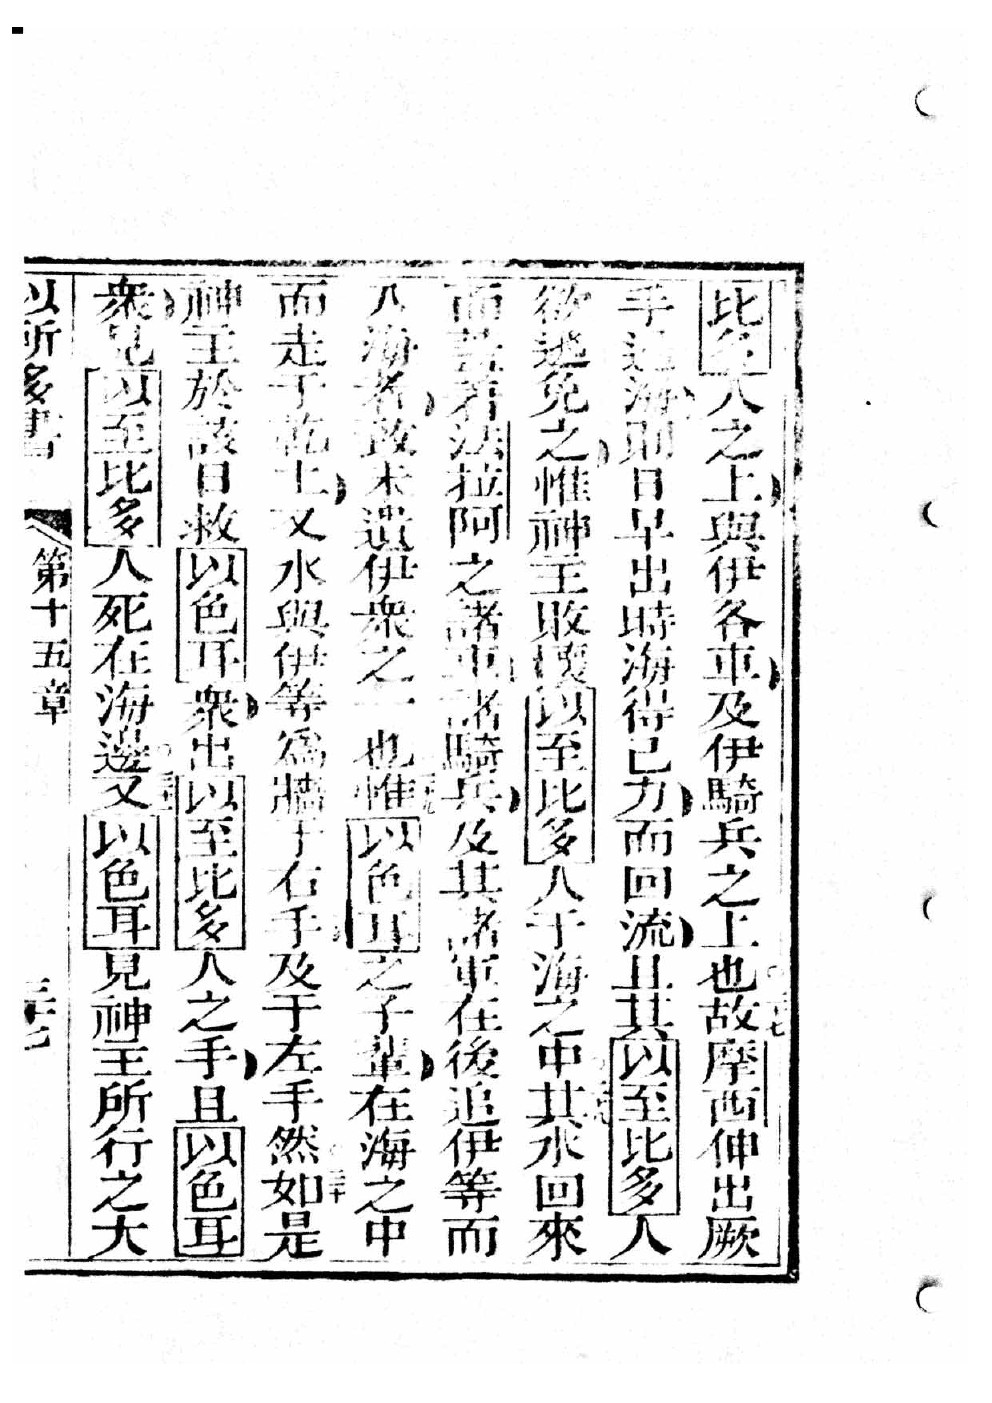 比多人之上與伊各車及伊騎兵之上也故摩西伸出厥
手過海則日早出時海得己力而回流且其以至比多人
欲逃免之惟神王敗懷以至比多人于海之中其水回來
而蓋着法拉阿之諸車諸騎兵及其諸軍在後追伊等而
入海者致未遺伊衆之一也惟以色耳之子輩在海之中
而走于乾土又水與伊等為牆于右手及于左手然如是
神王於該日救以色耳衆出以至比多人之手且以色耳
衆見以至比多人死在海邊又以色耳見神王所行之大
以所多書 第十五章 三十七